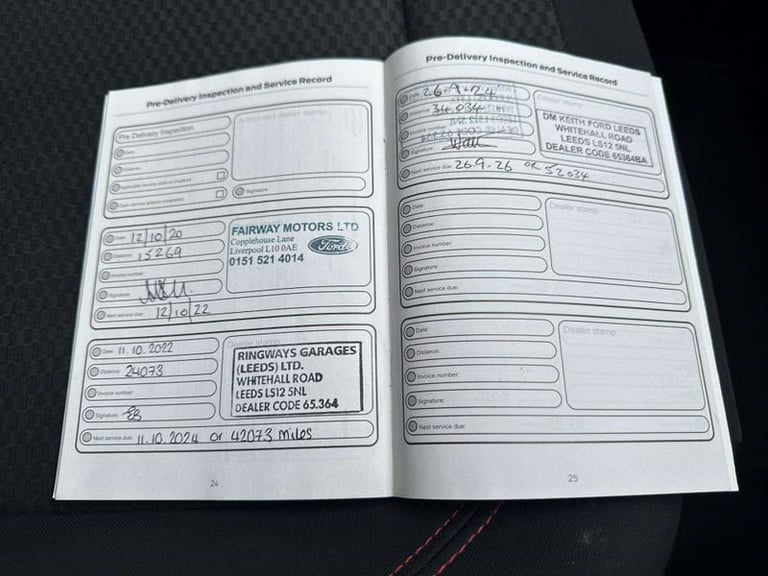 Pre-Delivery Inspection and Service Record
Pre Delivery Inspection
Authorised dealer stamp
Date:
Distance:
Signature:
Date: 12/10/20
Distance: 15269
Invoice number:
Signature:
Next service due: 12/10/22
FAIRWAY MOTORS LTD
Copplehouse Lane
Liverpool L10 0AE
0151 521 4014
Ford
Date: 11.10.2022
Distance: 24073
Invoice number:
Signature:
Next service due: 11.10.2024 or 42073 miles
Dealer stamp
RINGWAYS GARAGES
(LEEDS) LTD.
WHITEHALL ROAD
LEEDS LS12 5NL
DEALER CODE 65.364
24
Pre-Delivery Inspection and Service Record
Date: 26-9-24
Distance: 34,034
Invoice number:
Signature:
Next service due: 26.9.26 or 52034
Dealer stamp
DM KEITH FORD LEEDS
WHITEHALL ROAD
LEEDS LS12 5NL
DEALER CODE 65364BA
Date:
Distance:
Invoice number:
Signature:
Next service due:
Dealer stamp
Date:
Distance:
Invoice number:
Signature:
Next service due:
Dealer stamp
25